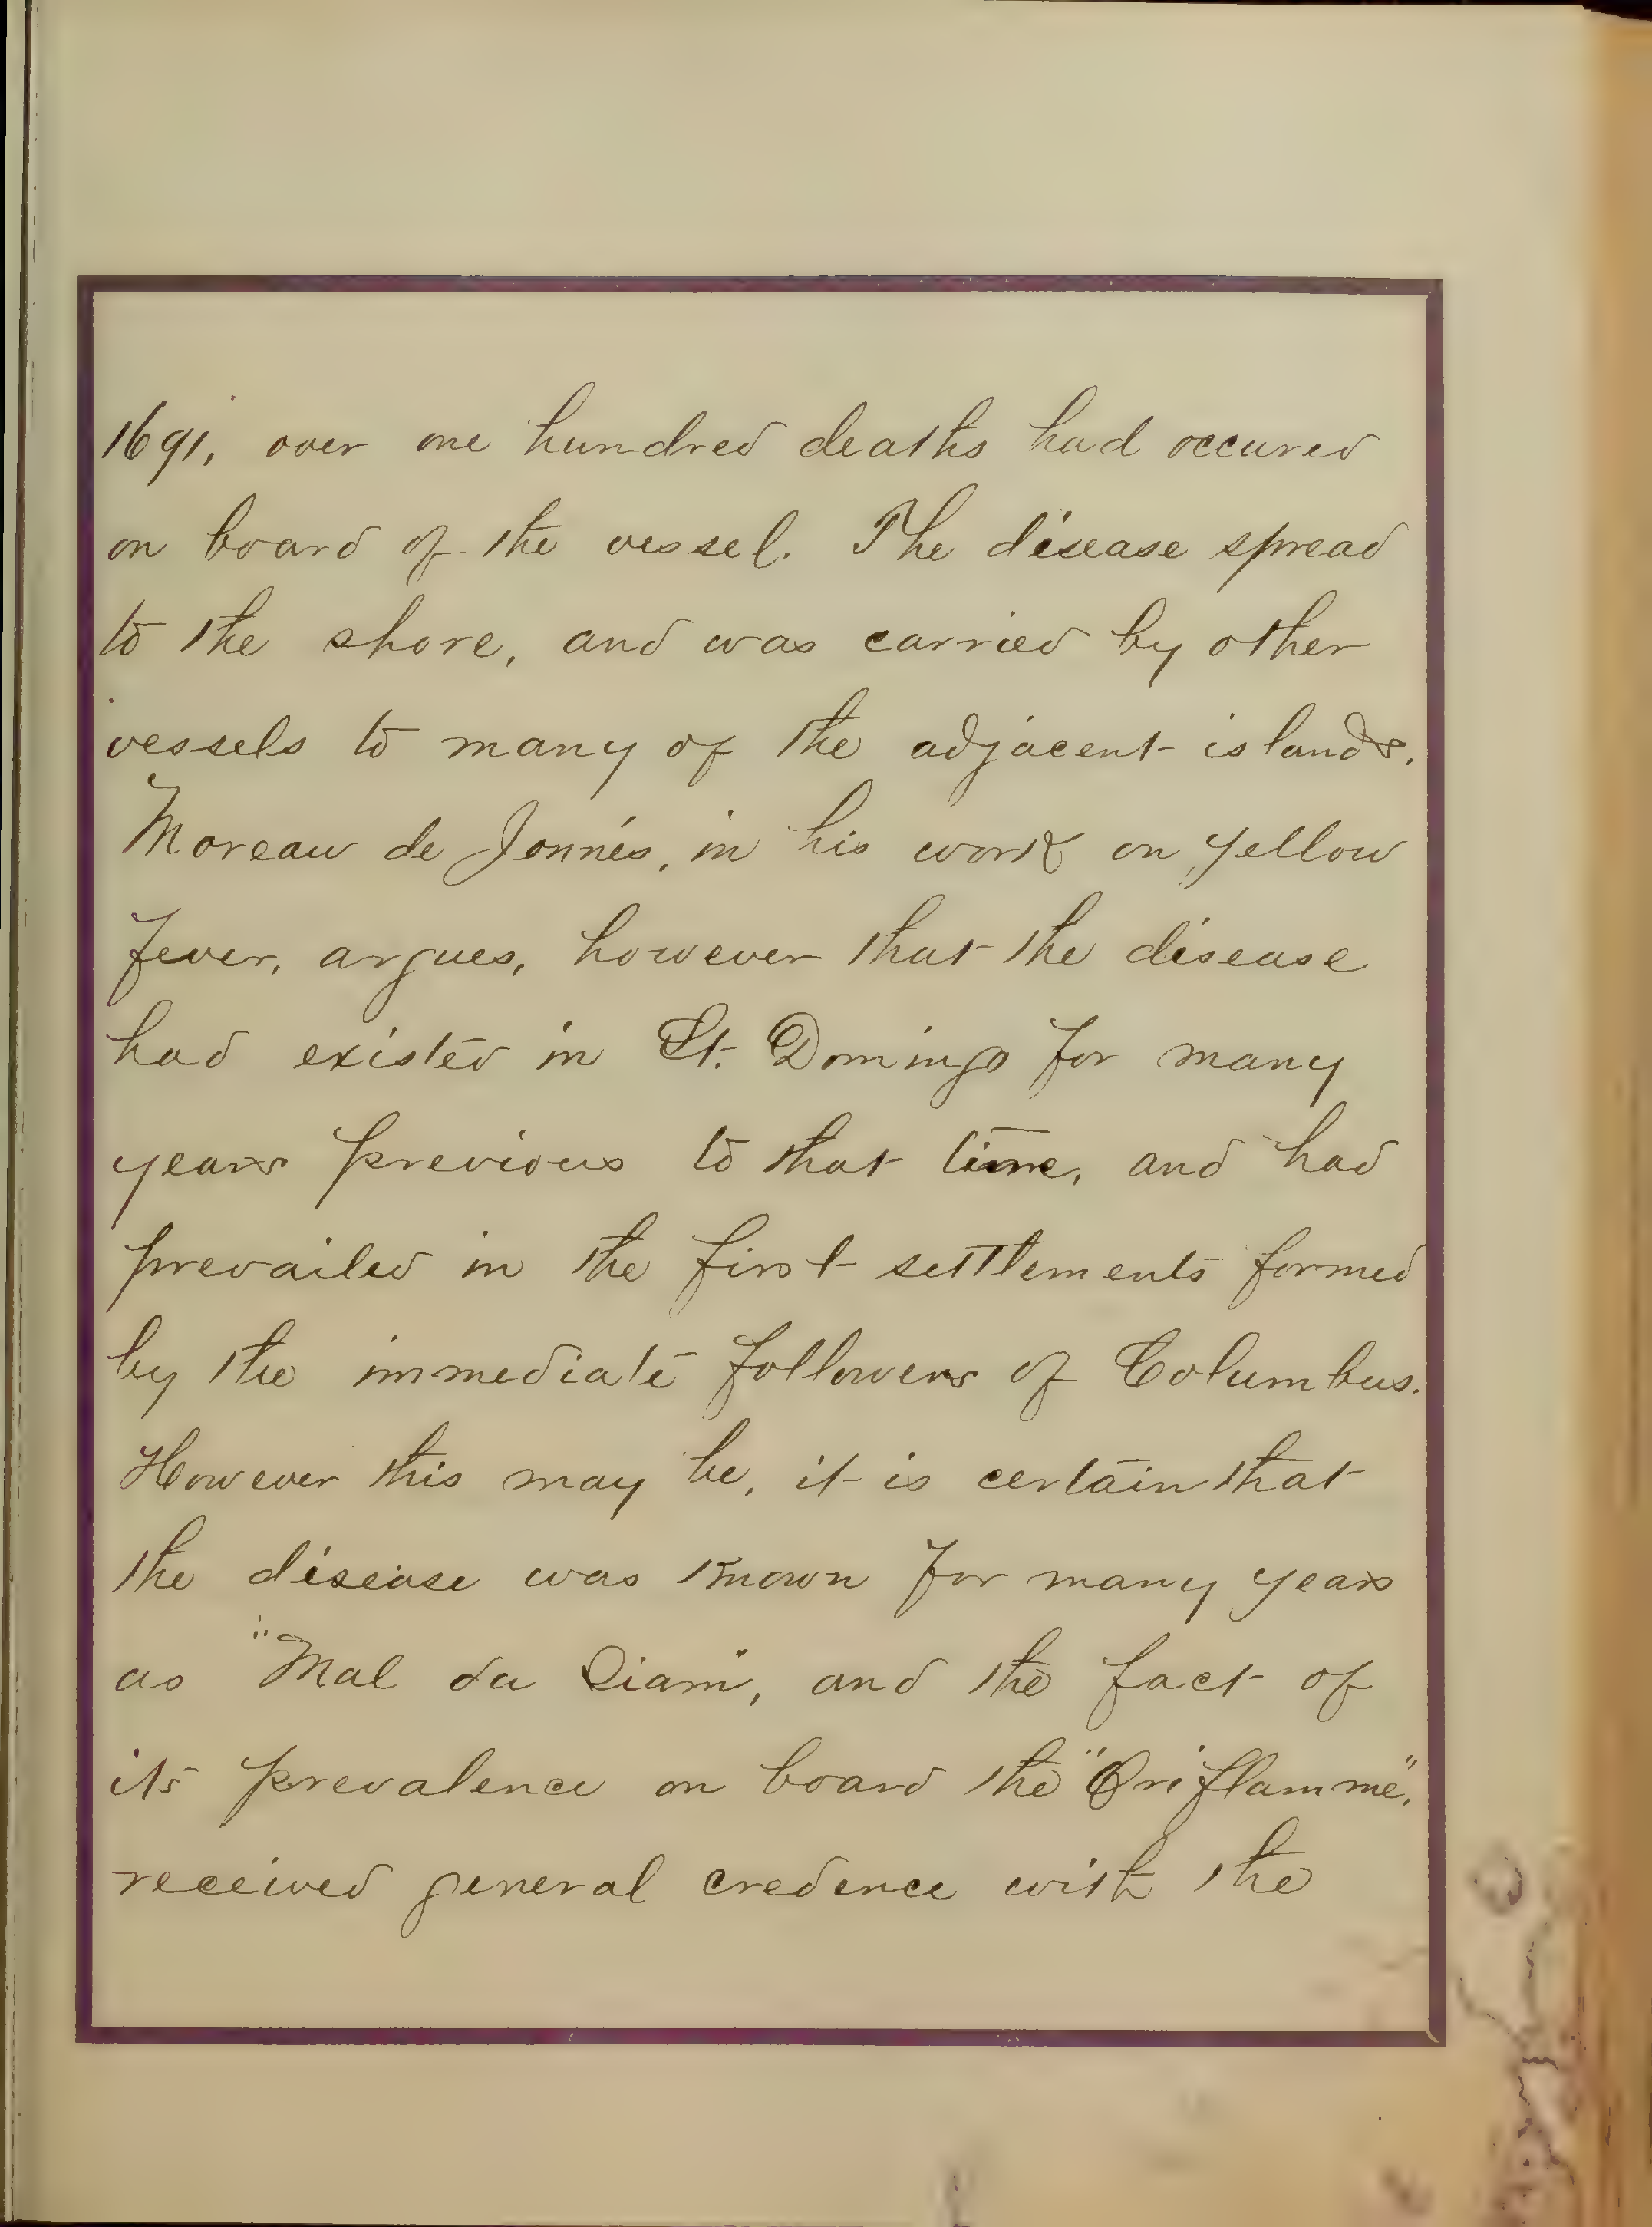 1691, over one hundred deaths had occured
on board of the vessel. The disease spread
to the shore, and was carried by other
vessels to many of the adjacent islands.
Moreau de Jonnés, in his work on yellow
fever, argues, however that the disease
had existed in St. Domingo for many
years previous to that time, and had
prevailed in the first settlements formed
by the immediate followers of Columbus.
However this may be, it is certain that
the disease was known for many years
as "Mal da Siam", and the fact of
its prevalence on board the "Oriflamme",
received general credence with the